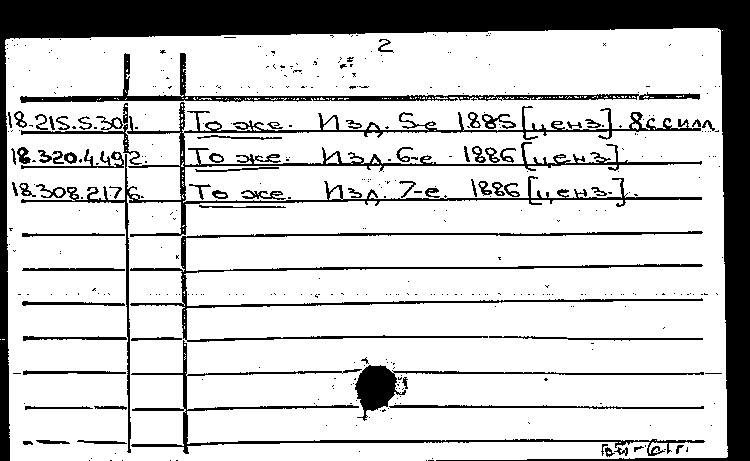 2
18.215.5.301. То же. Изд. 5-е 1885 [ценз.]
18.320.4.492. То же. Изд. 6-е. 1886 [ценз.]
18.308.2176. То же. Изд. 7-е. 1886 [ценз.].